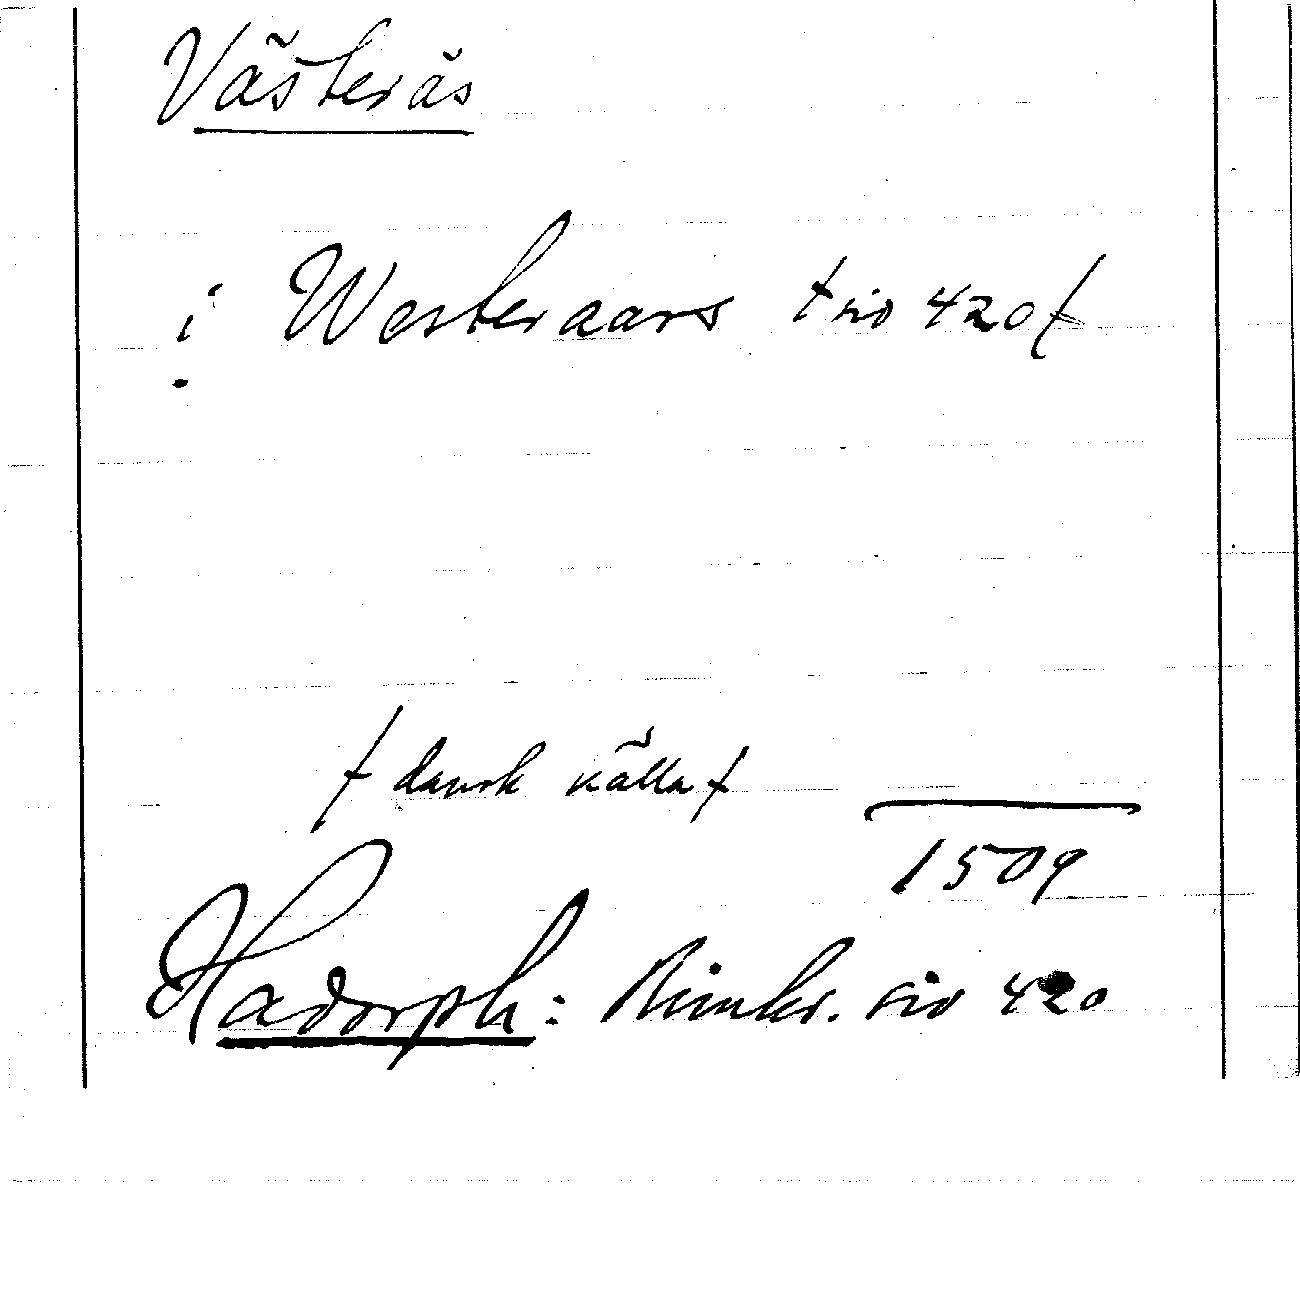 Västerås
i Westeraars /: sid 420 :/
/: dansk källa :/
1509
Hadorph: Rimkr. sid 420